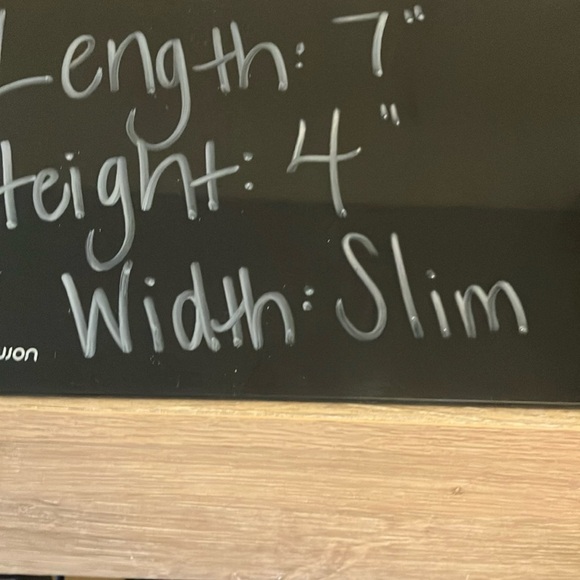 Length: 7"
Height: 4"
Width: Slim